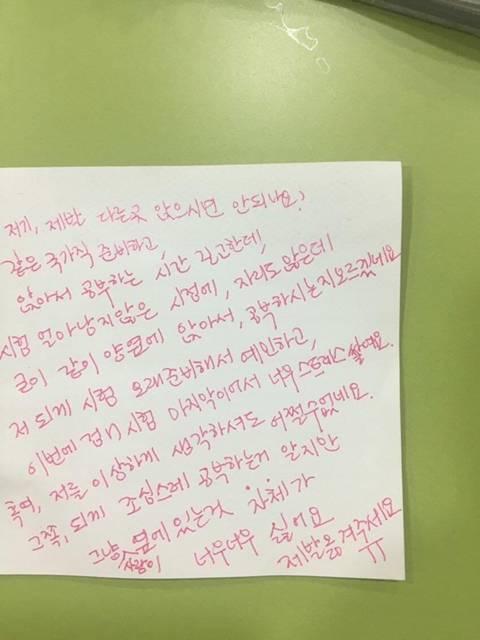 저기, 제발 다른곳 앉으시면 안되나요?
같은 국가직 준비하고,
앉아서 공부하는 시간 길고한데,
시험 얼마남지않은 시점에, 자리도 많은데
굳이 같이 양옆에 앉아서, 공부하시는지모르겠네요
저 되게 시험 오래준비해서 예민하고,
이번에 시험 마지막이여서 너무 스트레스 쌓여요.
혹여, 저를 이상하게 생각하셔도 어쩔수없네요.
그쪽, 되게 조심스레 공부하는거 알지만
그냥 사람이 옆에 있는것 자체가
너무너무 싫어요
제발옮겨주세요
ㅠ